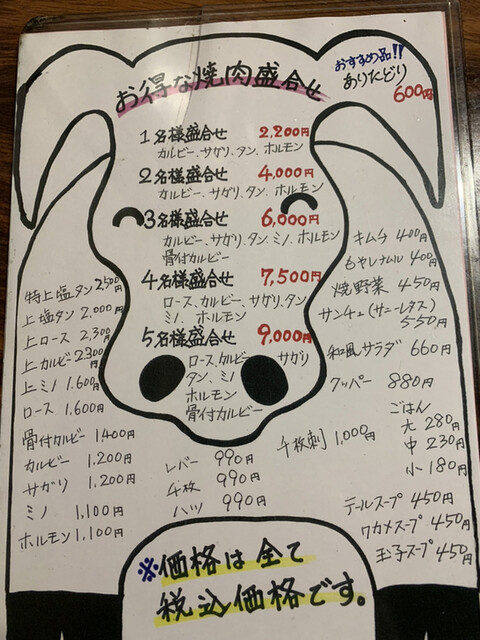 お得な焼肉盛合せ
おすすめ品!!
ありたどり
600円
1名様盛合せ 2,200円
カルビー、サガリ、タン、ホルモン
2名様盛合せ 4,000円
カルビー、サガリ、タン、ホルモン
3名様盛合せ 6,000円
カルビー、サガリ、タン、ミノ、ホルモン
骨付カルビー
4名様盛合せ 7,500円
ロース、カルビー、サガリ、タン
ミノ、ホルモン
5名様盛合せ 9,000円
ロース、カルビー サガリ
タン、ミノ
ホルモン
骨付カルビー
特上塩タン 2,500円
上塩タン 2,000円
上ロース 2,300円
上カルビー 2,300円
上ミノ 1,600円
ロース 1,600円
骨付カルビー 1,400円
カルビー 1,200円
サガリ 1,200円
ミノ 1,100円
ホルモン 1,100円
レバー 990円
千枚 990円
ハツ 990円
千枚刺 1,000円
キムチ 400円
もやしナムル 400円
焼野菜 450円
サンチュ(サニーレタス)
550円
和風サラダ 660円
クッパー 880円
ごはん
大 280円
中 230円
小 180円
テールスープ 450円
ワカメスープ 450円
玉子スープ 450円
※価格は全て
税込価格です。